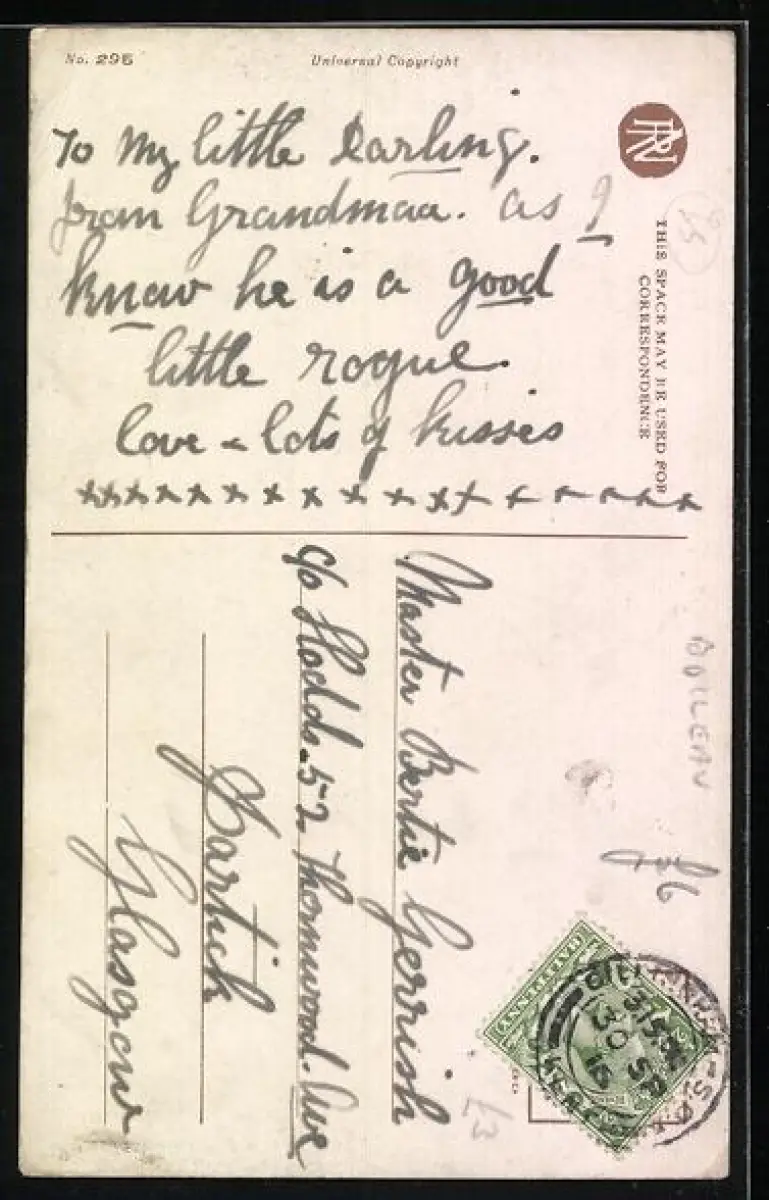 No. 295
Universal Copyright
To My little Darling.
from Grandmaa. as I
know he is a good
little rogue.
love & lots of kisses
xxxxxxxxxxxxxxxxxx
RN
THIS SPACE MAY BE USED FOR
CORRESPONDENCE
BOILEAU
Master Bertie Gerrish
c/o Hodds. 52 Thornwood. Ave
Partick
Glasgow
HALFPENNY
30 SP
16
£3